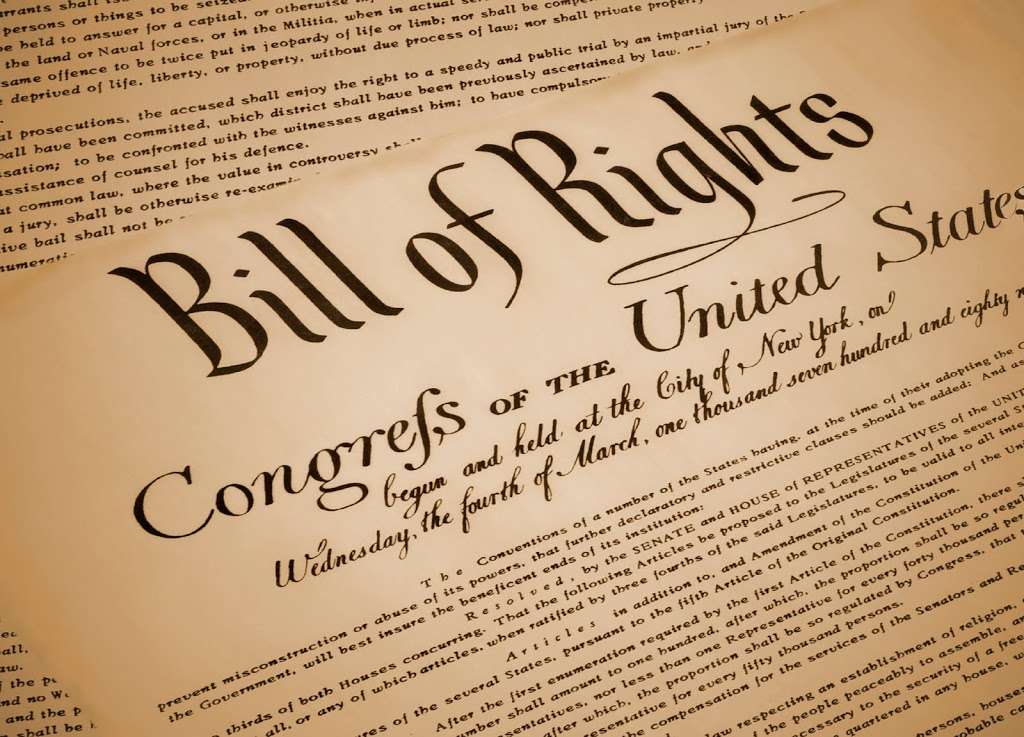 shall
persons or things to be
be held to answer for a capital, or otherwise
the land or Naval forces, or in the Militia, when in actual
same offence to be twice put in jeopardy of life or limb; nor shall be
deprived of life, liberty, or property, without due process of law; nor shall private property
prosecutions, the accused shall enjoy the right to a speedy and public trial by an impartial jury of the
have been committed, which district shall have been previously ascertained by law,
to be confronted with the witnesses against him; to have
assistance of counsel for his defence.
common law, where the value in controversy
a jury, shall be otherwise
bail shall not be
Bill of Rights
Congreſs OF THE United States
begun and held at the City of New York, on
Wednesday, the fourth of March, one thousand seven hundred and eighty
The Conventions of a number of the States having, at the time of their adopting the
prevent misconstruction or abuse of its powers, that further declaratory and restrictive clauses should be added: And as
the Government, will best insure the beneficent ends of its institution:
Resolved, by the SENATE and HOUSE of REPRESENTATIVES of the
thirds of both Houses concurring. That the following Articles be proposed to the Legislatures of the several
all, or any of which articles, when ratified by three fourths of the said Legislatures, to be valid to all
Articles in addition to, and Amendment of the Constitution of the
of the several States, pursuant to the fifth Article of the Original Constitution.
After the first enumeration required by the first Article of the Constitution, there
shall amount to one hundred, after which, the proportion shall be so
nor less than one Representative for every forty thousand
after which, the proportion shall be so regulated by Congress, that
for every fifty thousand persons.
compensation for the services of the Senators and
law respecting an establishment of religion,
of the people peaceably to assemble,
to the security of a
quartered in any house,
persons,
all,
law.
the
and no
and the
shall be